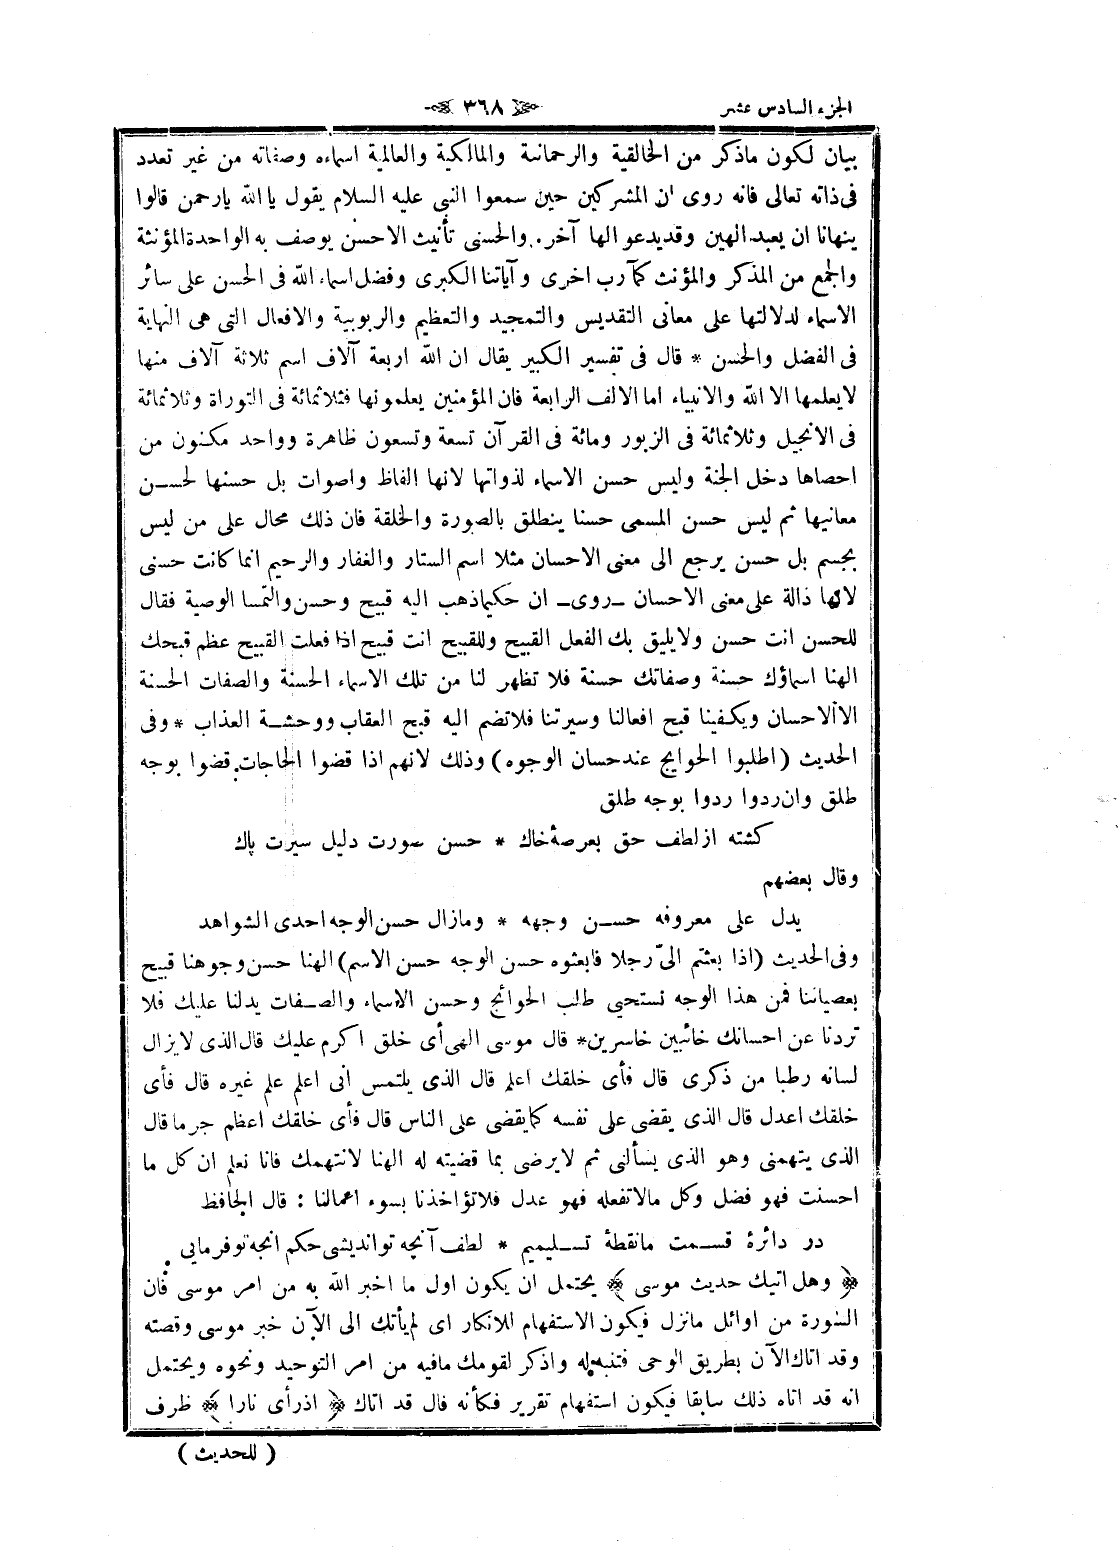 الجزء السادس عشر ٣٦٨
بيان لكون ماذكر من الخالقية والرحمانية والمالكية والعالمية اسماءه وصفاته من غير تعدد
فى ذاته تعالى فانه روى ان المشركين حين سمعوا النبى عليه السلام يقول يا الله يارحمن قالوا
ينهانا ان يعبد الهين وقديدعو الها آخر. والحسنى تأنيث الاحسن يوصف به الواحدة المؤنثة
والجمع من المذكر والمؤنث كمآرب اخرى وآياتنا الكبرى وفضل اسماء الله فى الحسن على سائر
الاسماء لدلالتها على معانى التقديس والتمجيد والتعظيم والربوبية والافعال التى هى النهاية
فى الفضل والحسن * قال فى تفسير الكبير يقال ان لله اربعة آلاف اسم ثلاثة آلاف منها
لايعلمها الا الله والانبياء اما الالف الرابعة فان المؤمنين يعلمونها فثلاثمائة فى التوراة وثلاثمائة
فى الانجيل وثلاثمائة فى الزبور ومائة فى القرآن تسعة وتسعون ظاهرة وواحد مكنون من
احصاها دخل الجنة وليس حسن الاسماء لذواتها لانها الفاظ واصوات بل حسنها لحسن
معانيها ثم ليس حسن المسمى حسنا يتعلق بالصورة والخلقة فان ذلك محال على من ليس
بجسم بل حسن يرجع الى معنى الاحسان مثلا اسم الستار والغفار والرحيم انما كانت حسنى
لانها دالة على معنى الاحسان ـ روى ـ ان حكيما ذهب اليه قبيح وحسن والتمسا الوصية فقال
للحسن انت حسن ولايليق بك الفعل القبيح وللقبيح انت قبيح اذا فعلت القبيح عظم قبحك
الهنا اسماؤك حسنة وصفاتك حسنة فلا تظهر لنا من تلك الاسماء الحسنة والصفات الحسنة
الا الاحسان ويكفينا قبح افعالنا وسيرتنا فلاتضم اليه قبح العقاب ووحشة العذاب * وفى
الحديث (اطلبوا الحوايج عند حسان الوجوه) وذلك لانهم اذا قضوا الحاجات قضوا بوجه
طلق وان ردوا ردوا بوجه طلق
كشته از لطف حق بعرصهٔ خاك * حسن صورت دليل سيرت پاك
وقال بعضهم
يدل على معروفه حسن وجهه * ومازال حسن الوجه احدى الشواهد
وفى الحديث (اذا بعثتم الىّ رجلا فابعثوه حسن الوجه حسن الاسم) الهنا حسن وجوهنا قبيح
بعصياننا فمن هذا الوجه نستحيى طلب الحوائج وحسن الاسماء والصفات يدلنا عليك فلا
تردنا عن احسانك خائبين خاسرين * قال موسى الهى أى خلق اكرم عليك قال الذى لايزال
لسانه رطبا من ذكرى قال فأى خلقك اعلم قال الذى يلتمس الى اعلم علم غيره قال فأى
خلقك اعدل قال الذى يقضى على نفسه كمايقضى على الناس قال فأى خلقك اعظم جرما قال
الذى يتهمنى وهو الذى يسألنى ثم لايرضى بما قضيته له الهنا لانتهمك فانا نعلم ان كل ما
احسنت فهو فضل وكل مالاتفعله فهو عدل فلاتؤاخذنا بسوء اعمالنا : قال الحافظ
در دائرهٔ قسمت مانقطهٔ تسليميم * لطف آنچه توانديشى حكم انجه توفرمايى
﴿ وهل اتيك حديث موسى ﴾ يحتمل ان يكون اول ما اخبر الله به من امر موسى فان
السورة من اوائل مانزل فيكون الاستفهام للانكار اى لم يأتك الى الآن خبر موسى وقصته
وقد اتاك الآن بطريق الوحى فتنبه له واذكر لقومك مافيه من امر التوحيد ونحوه ويحتمل
انه قد اتاه ذلك سابقا فيكون استفهام تقرير فكأنه قال قد اتاك ﴿ اذ رأى نارا ﴾ ظرف
( للحديث )